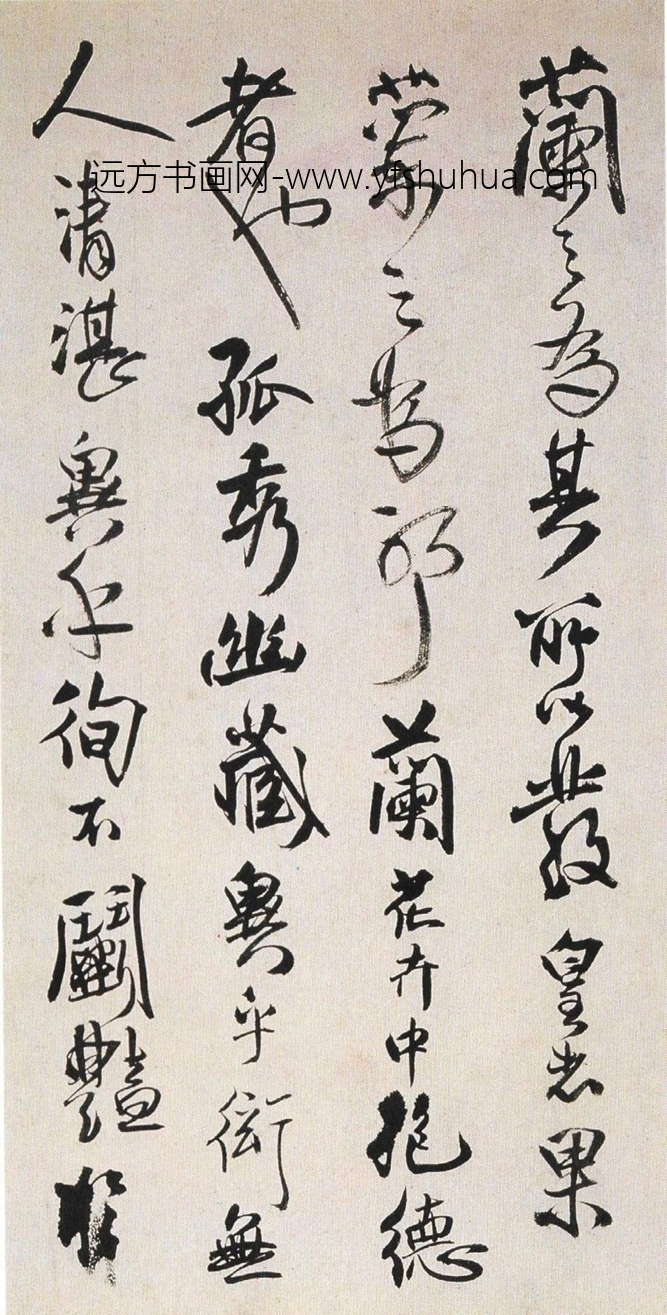 远方书画网-www.yfshuhua.com
蘭之為其所以發皇者果
之為耶蘭花卉中抱德
者也孤秀幽藏異乎衒無
人清湛異乎徇不鬭艷